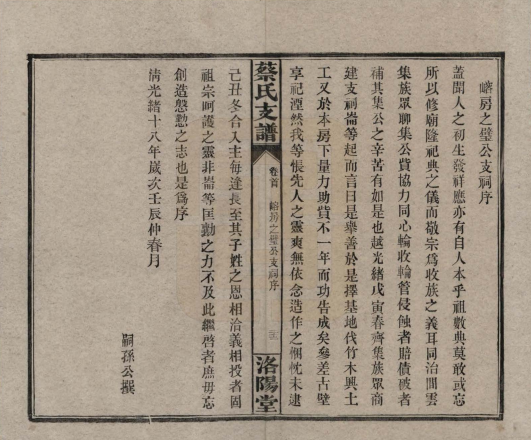 瞎房之璧公支祠序
蓋聞人之初生發祥應亦有自人本乎祖數典莫敢或忘
所以修廟隆祀典之儀而敬宗爲收族之義耳同治間雲
集族眾聊集公貲協力同心輪收輪管侵蝕者賠債破者
補其集公之辛苦有如是也越光緒戊寅春齊集族眾商
建支祠崙等起而言曰是舉善於是擇基地伐竹木興土
工又於本房下量力助貲不一年而功告成矣參差古壁
享祀湮然我等悵先人之靈爽無依念造作之悃忱未逮
蔡氏支譜
卷首
房之璧公支祠序
洛陽堂
己丑冬合入主每逢長至其子姓之恩相洽義相投者固
祖宗呵護之靈非崙等匡勷之力不及此繼啓者庶毋忘
創造慇懃之志也是爲序
清光緒十八年歲次壬辰仲春月
嗣孫公撰